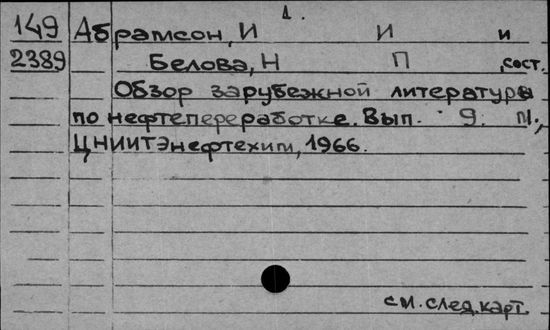 1.
149 Абрамсон, И И и
2389 Белова, Н П , сост.
Обзор зарубежной литературы
по нефтепереработке. Вып. 9. М.,
ЦНИИТЭнефтехим, 1966.
см. след. карт.